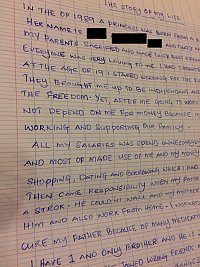 THE STORY OF MY LIFE
IN THE OF 1989 A PRINCESS WAS BORN FROM A
HER NAME IS
MY PARENTS SACRIFIED AND MADE THEIR BEST
EVERYONE WAS VERY LOVING TO ME. I HAD
AT THE AGE OF 19 I STARTED WORKING FOR THE
THEY BROUGHT ME UP TO BE INDEPENDENT AND
THE FREEDOM. YET, AFTER ME GOING TO WORK
NOT DEPEND ON ME FOR MONEY BECAUSE
WORKING AND SUPPORTING OUR FAMILY.
ALL MY SALARIES WAS SPEND UNNECESSARILY
AND MOST OF MADE USE OF ME AND MY MONEY
SHOPPING, DATING AND BORROWING WHICH I HAD
THEN CAME RESPONSIBILITY WHEN MY FATHER
A STROK. HE COULDN'T WALK AND MY MOTHER
HIM AND ALSO WORK FROM HOME. I WORKED
CURE MY FATHER BECAUSE OF MANY MEDICATIONS
I HAVE 1 AND ONLY BROTHER AND HE IS
JOINED WRONG FRIENDS